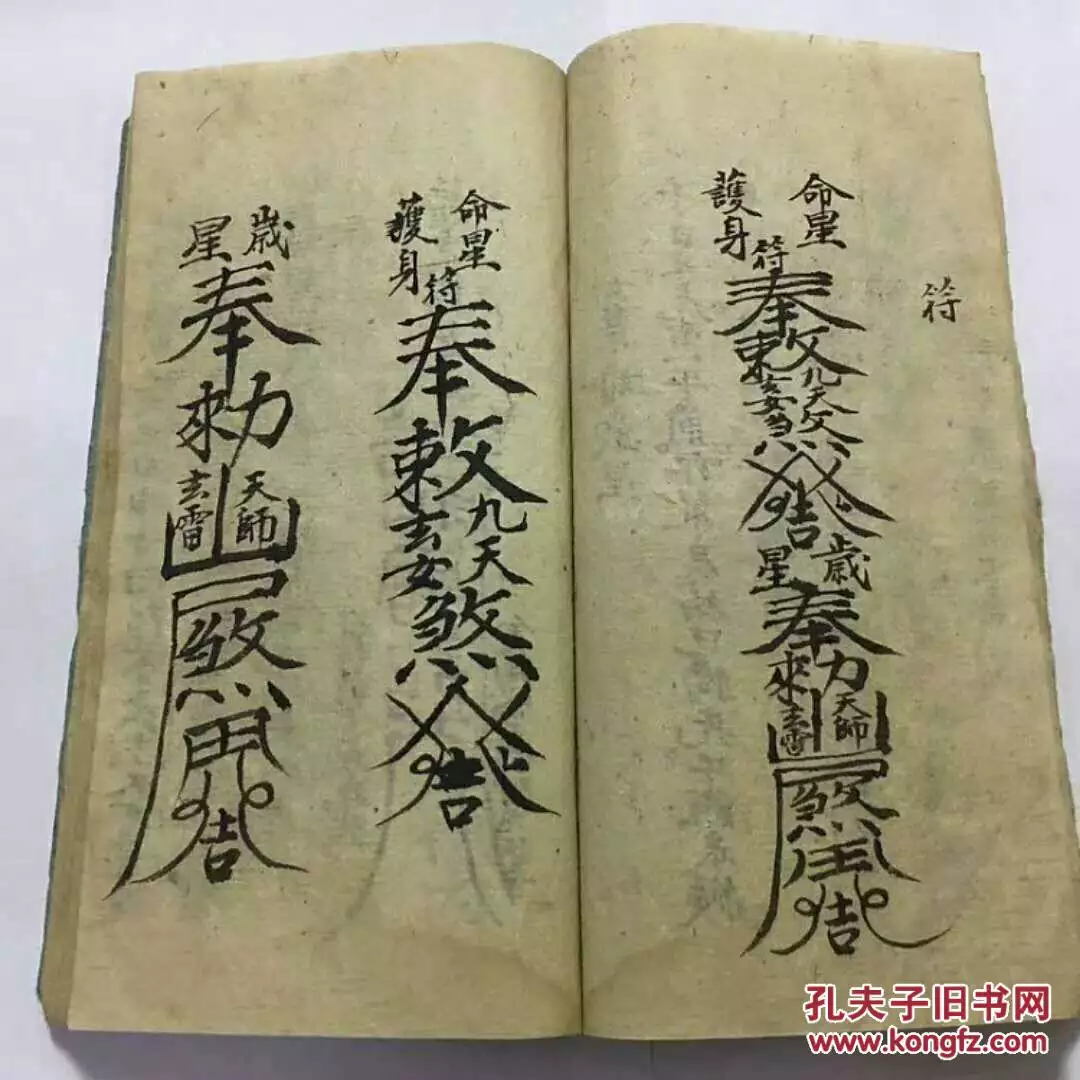 符
命星
護身
符
奉
敕
九天
玄女
煞
吉
歲
星
奉
勑
天師
玄雷
煞
吉
命星
護身
符
奉
敕
九天
玄女
煞
吉
歲
星
奉
勑
天師
玄雷
煞
吉
孔夫子旧书网
www.kongfz.com